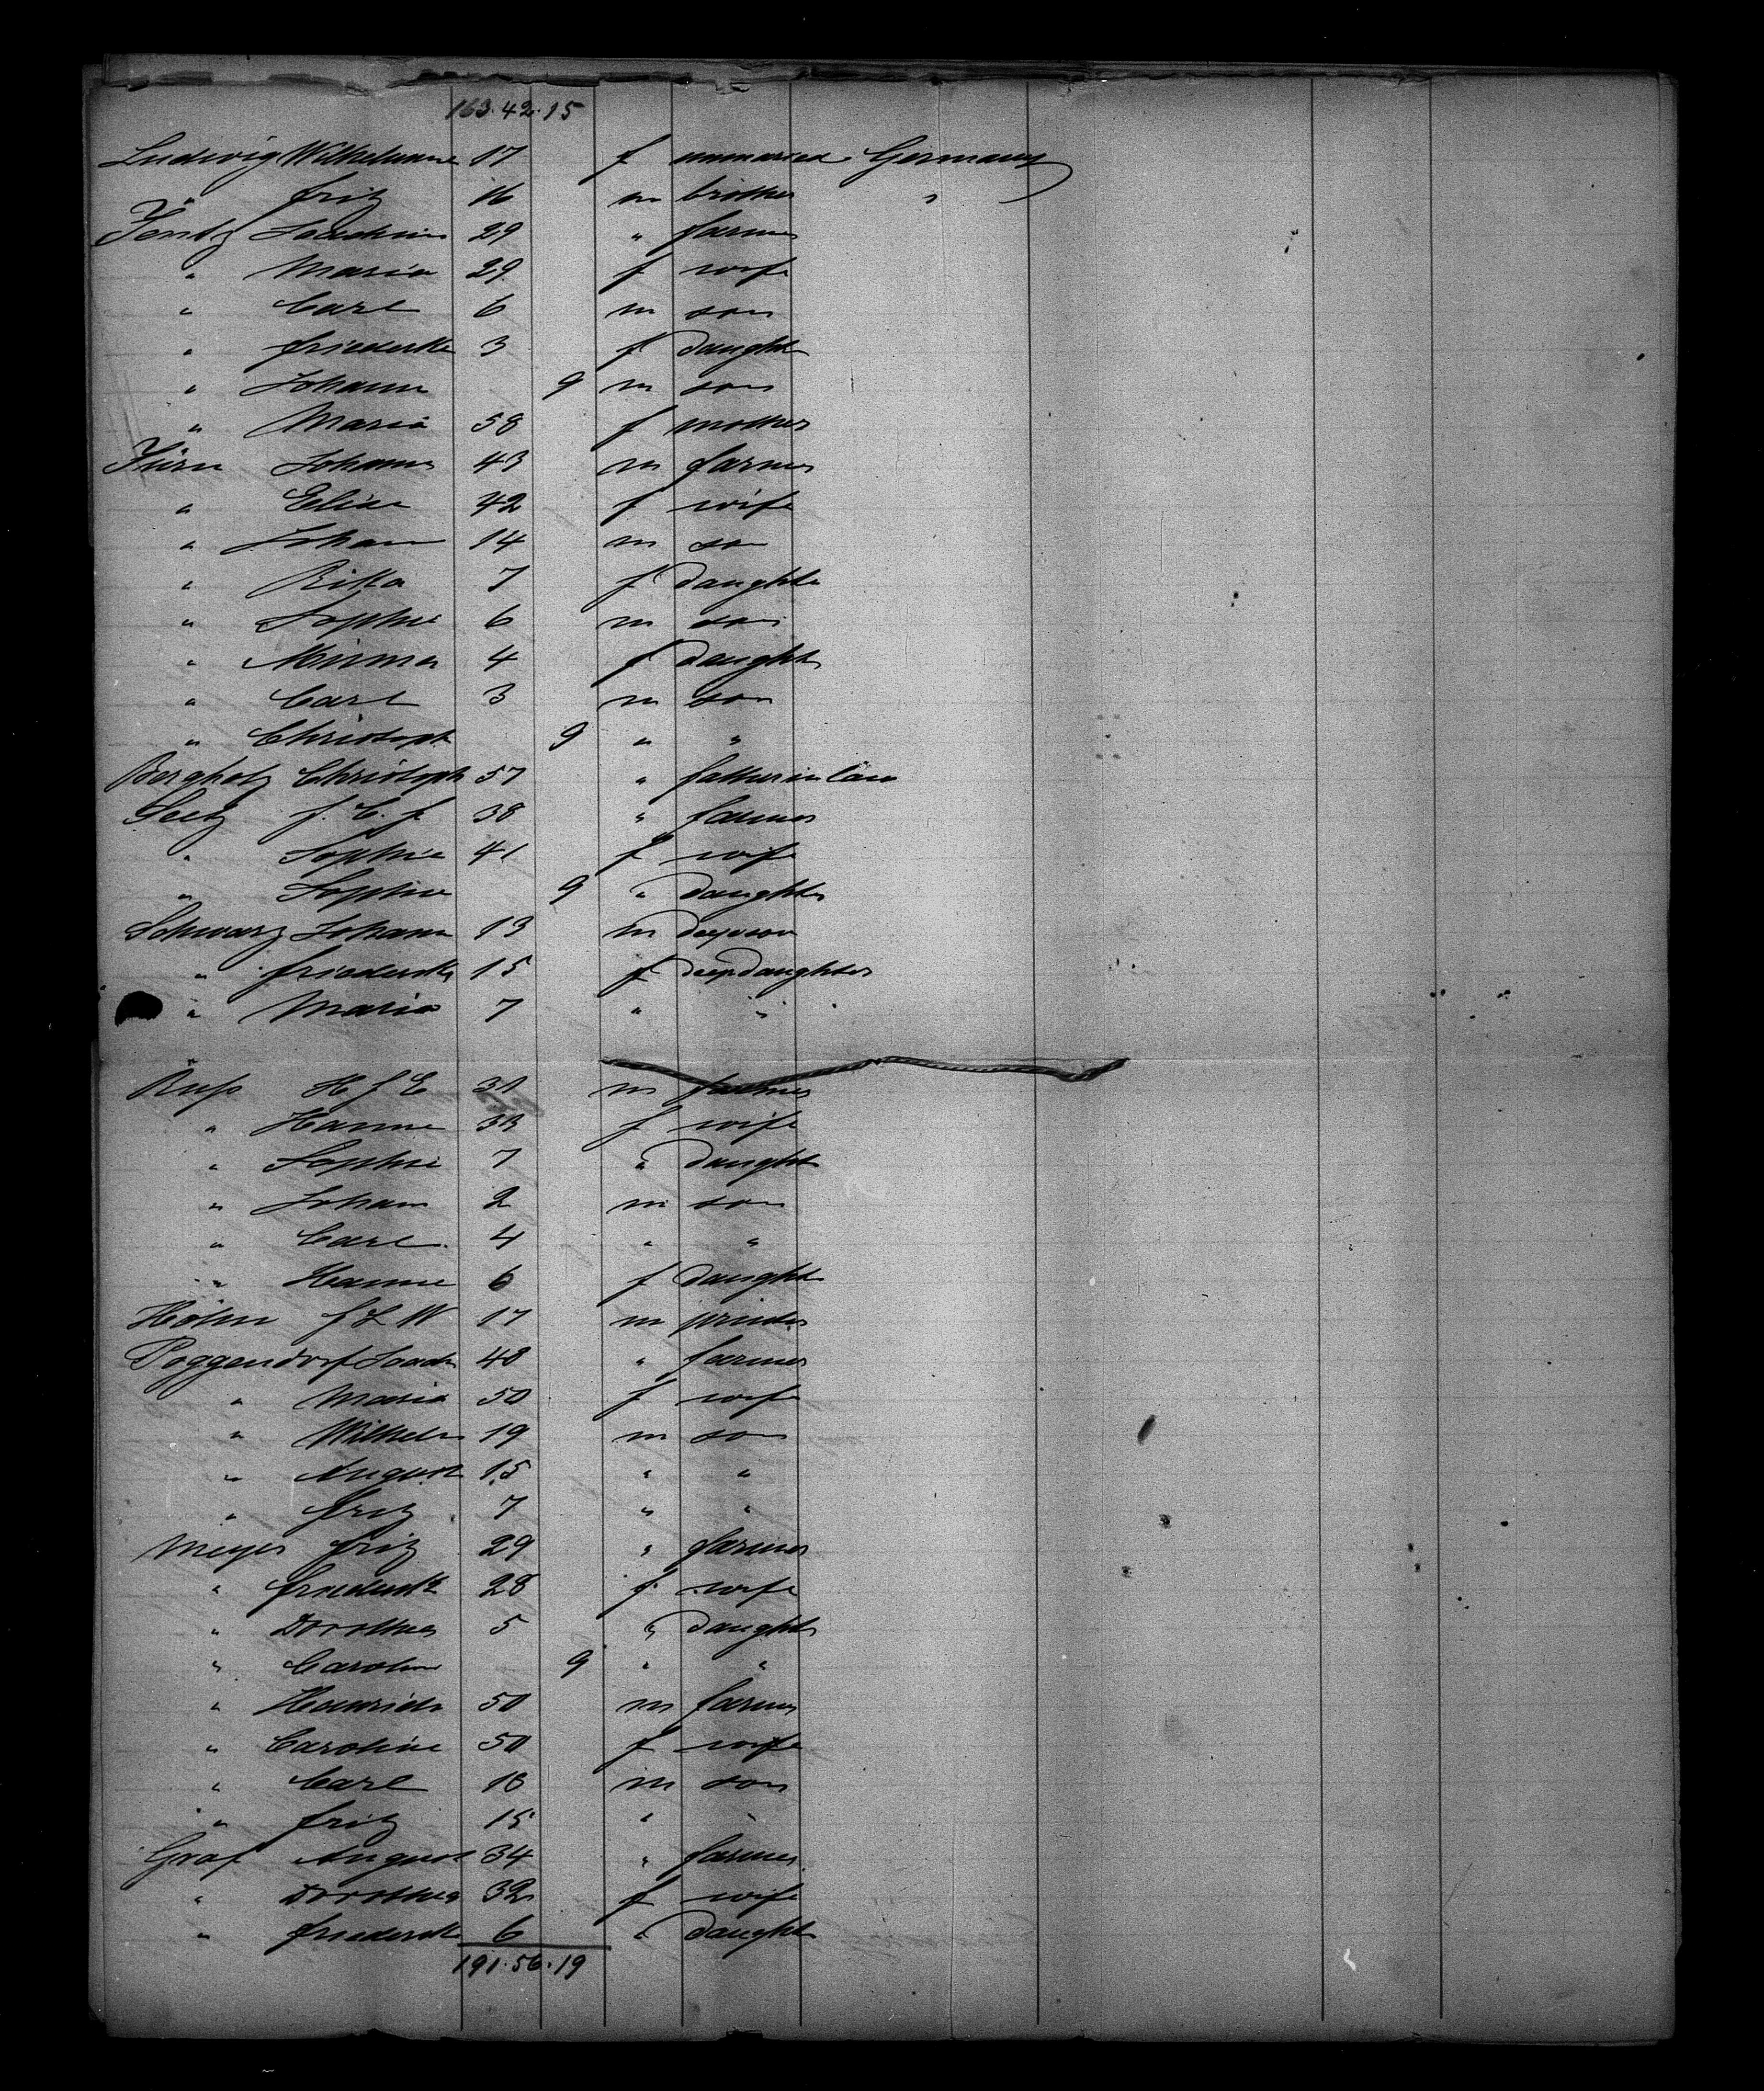 163.42.15
Ludwig Wilhelmine 17 f unmaried Germany
" Fritz 16 m brother "
Jentz Joachim 29 " farmer
" Maria 29 f wife
" Carl 6 m son
" Friederike 3 f daught
" Johann 9 m son
" Maria 58 f mother
Jürn Johann 43 m farmer
" Elise 42 f wife
" Johan 14 m son
" Rika 7 f daughte
" Sophie 6 m son
" Minna 4 f daught
" Carl 3 m son
" Christoph 9 " "
Bergholz Christoph 57 " father in law
Seetz f. C. f. 38 " farmer
" Sophie 41 f wife
" Sophie 9 " daughter
Schwarz Johann 13 m
" Friederike 15 f
" Maria 7 " "
Russ H f E 31 m farmer
" Hanne 33 f wife
" Sophie 7 " daught
" Johann 2 m son
" Carl 4 " "
" Hanne 6 f daught
Höhn f L W 17 m
Poggendorf Joach 48 " farmer
" Maria 50 f wife
" Wilhelm 19 m son
" August 15 " "
" Fritz 7 " "
Meyer Fritz 29 " farmer
" Friederike 28 f wife
" Dorothea 5 " daught
" Caroline 9 " "
" Heinrich 50 m farmer
" Caroline 50 f wife
" Carl 18 m son
" Fritz 15 " "
Graf August 34 " farmer
" Dorothea 32 f wife
" Friederike 6 " daught
191.56.19